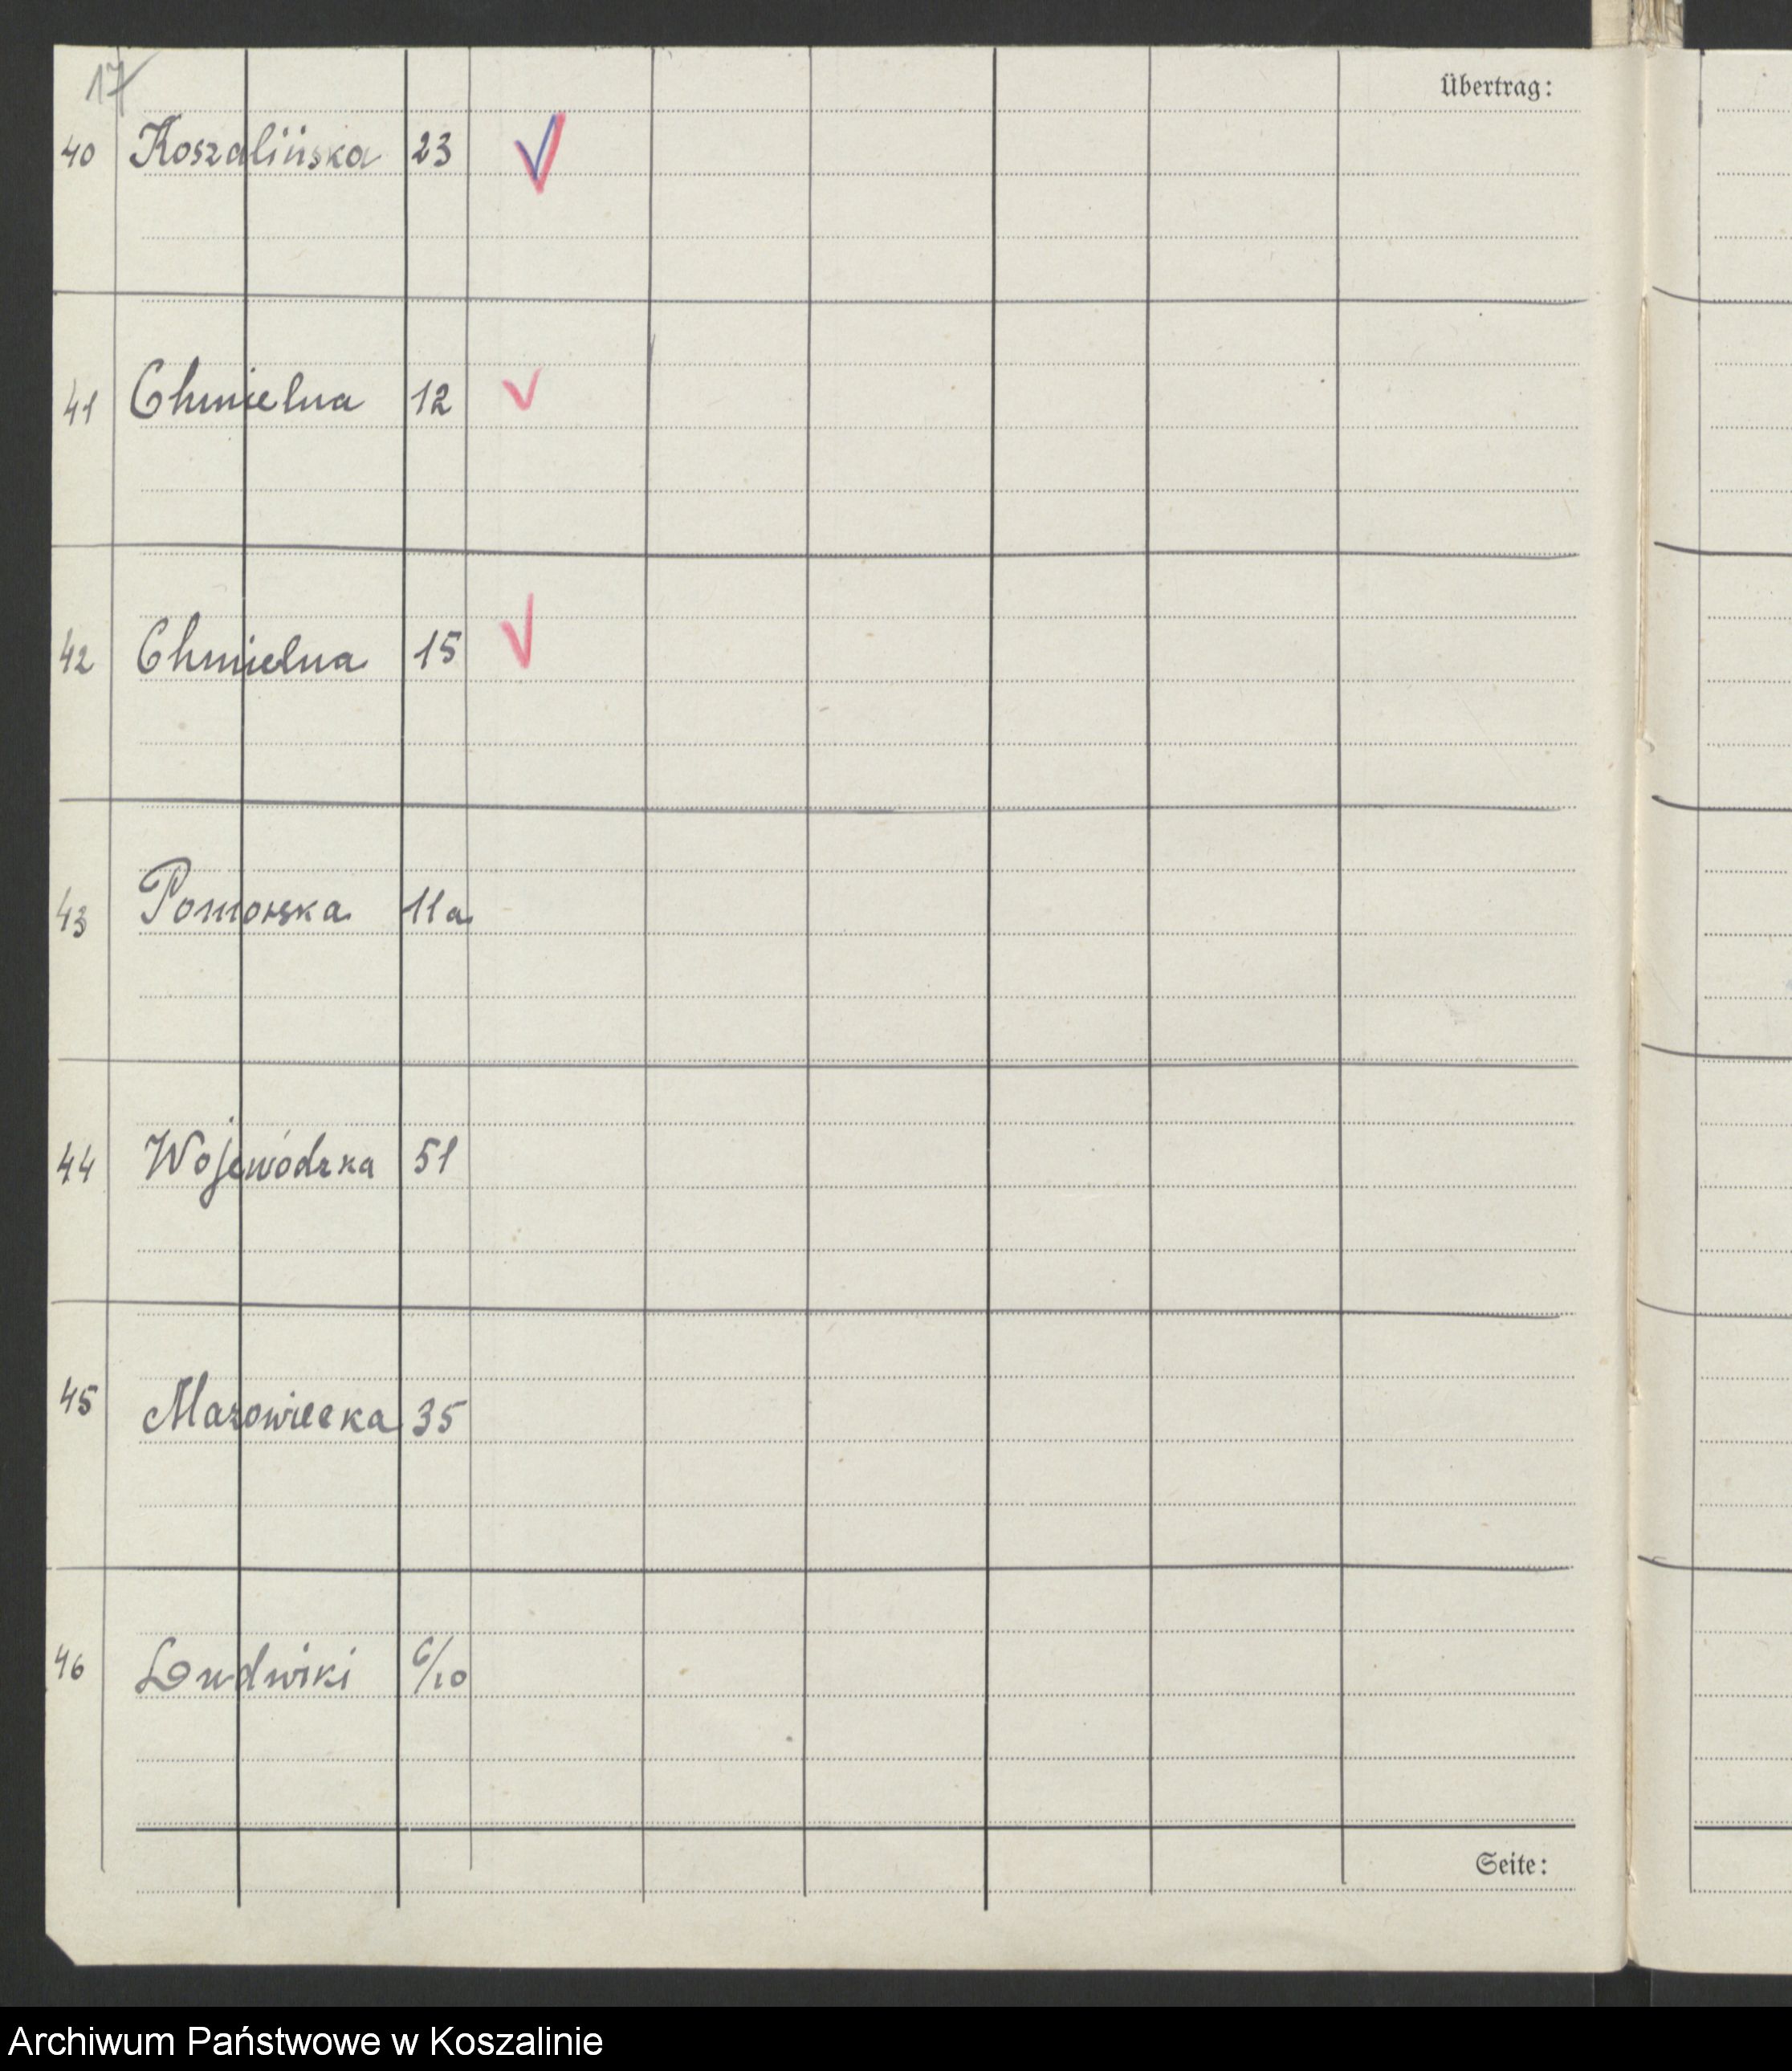 17
Übertrag:
40 Koszalińska 23 √
41 Chmielna 12 √
42 Chmielna 15 √
43 Pomorska 11a
44 Wojewódzka 51
45 Mazowiecka 35
46 Ludwiki 6/10
Seite:
Archiwum Państwowe w Koszalinie